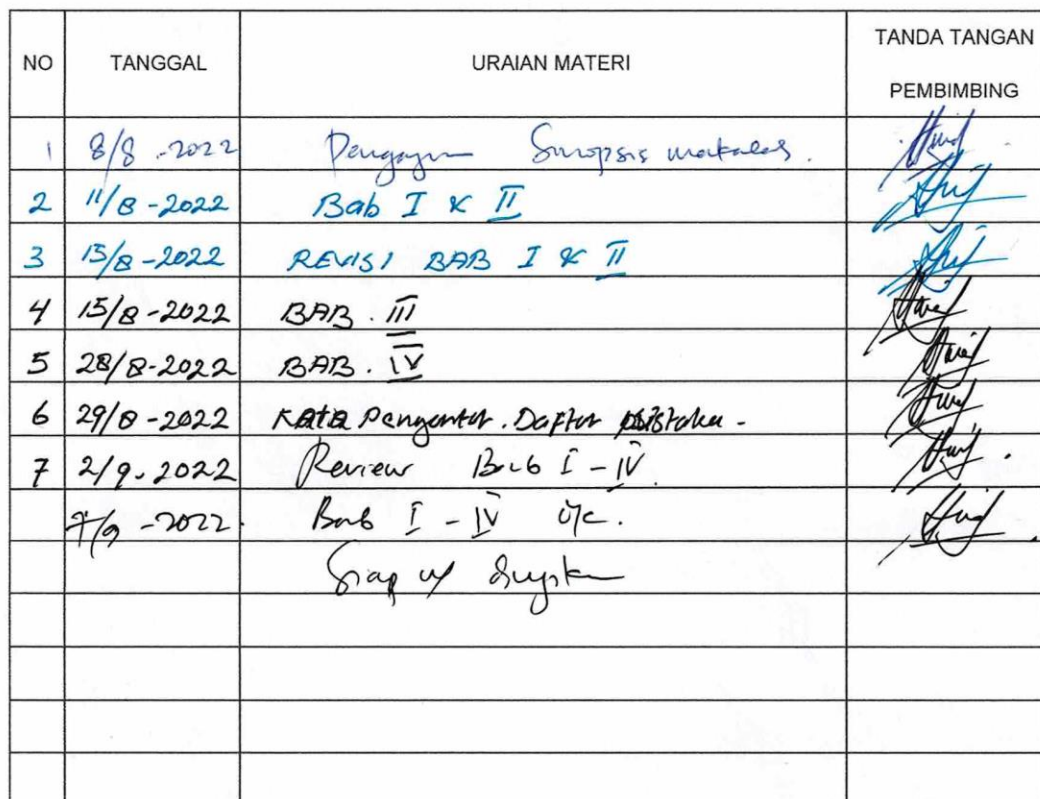 NO TANGGAL URAIAN MATERI TANDA TANGAN PEMBIMBING
1 8/8 - 2022 Sinopsis makalah.
2 11/8 - 2022 Bab I & II
3 15/8 - 2022 REVISI BAB I & II
4 15/8 - 2022 BAB. III
5 28/8 - 2022 BAB. IV
6 29/8 - 2022 Kata Pengantar. Daftar pustaka -
7 2/9 - 2022 Review Bab I - IV
7/9 - 2022. Bab I - IV
Siap u/